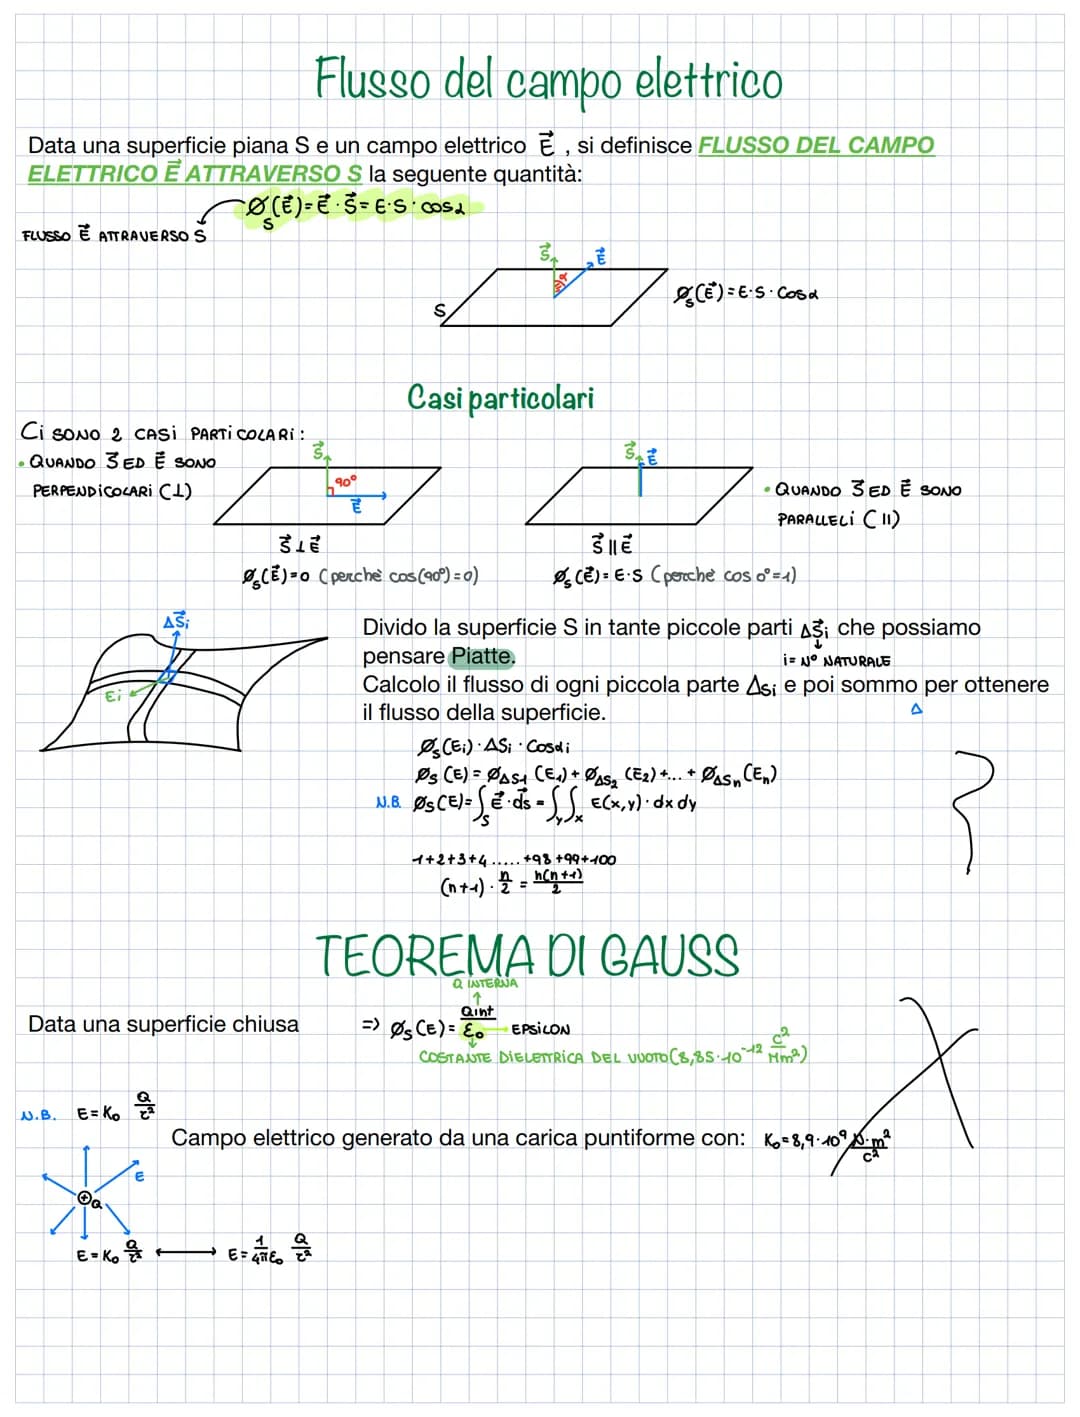 Flusso del campo elettrico
Data una superficie piana S e un campo elettrico E⃗ , si definisce FLUSSO DEL CAMPO
ELETTRICO E⃗ ATTRAVERSO S la seguente quantità:
Ø_S(E⃗)=E⃗·S⃗=E·S·cosα
FLUSSO E⃗ ATTRAVERSO S
S⃗ E⃗
α
S
Ø_S(E⃗)=E·S·Cosα
Casi particolari
Ci SONO 2 CASI PARTICOLARI:
• QUANDO S⃗ ED E⃗ SONO
PERPENDICOLARI (⊥)
S⃗
90°
E⃗
S⃗ E⃗
• QUANDO S⃗ ED E⃗ SONO
PARALLELI (II)
S⃗⊥E⃗
S⃗||E⃗
Ø_S(E⃗)=0 (perchè cos(90°)=0)
Ø_S(E⃗)=E·S (perchè cos 0°=1)
ΔS⃗i
Ei
Divido la superficie S in tante piccole parti ΔS⃗i che possiamo
pensare Piatte.
i= N° NATURALE
Calcolo il flusso di ogni piccola parte ΔSi e poi sommo per ottenere
il flusso della superficie.
Δ
Ø_S(Ei)·ΔSi·Cosαi
Ø_S(E)=Ø_ΔS1(E1)+Ø_ΔS2(E2)+...+Ø_ΔSn(En)
N.B. Ø_S(E)=∫_S E⃗·ds⃗=∫_y∫_x E(x,y)·dx dy
1+2+3+4.....+98+99+100
(n+1)·n/2=n(n+1)/2
TEOREMA DI GAUSS
Q INTERNA
Data una superficie chiusa => Ø_S(E)=Qint/ε₀ EPSILON
COSTANTE DIELETTRICA DEL VUOTO(8,85·10⁻¹² C²/Nm²)
N.B. E=K₀ Q/r²
Campo elettrico generato da una carica puntiforme con: K₀=8,9·10⁹ N·m²/C²
E
+ Q
E=K₀ Q/r² ⟷ E=1/4πε₀ Q/r²